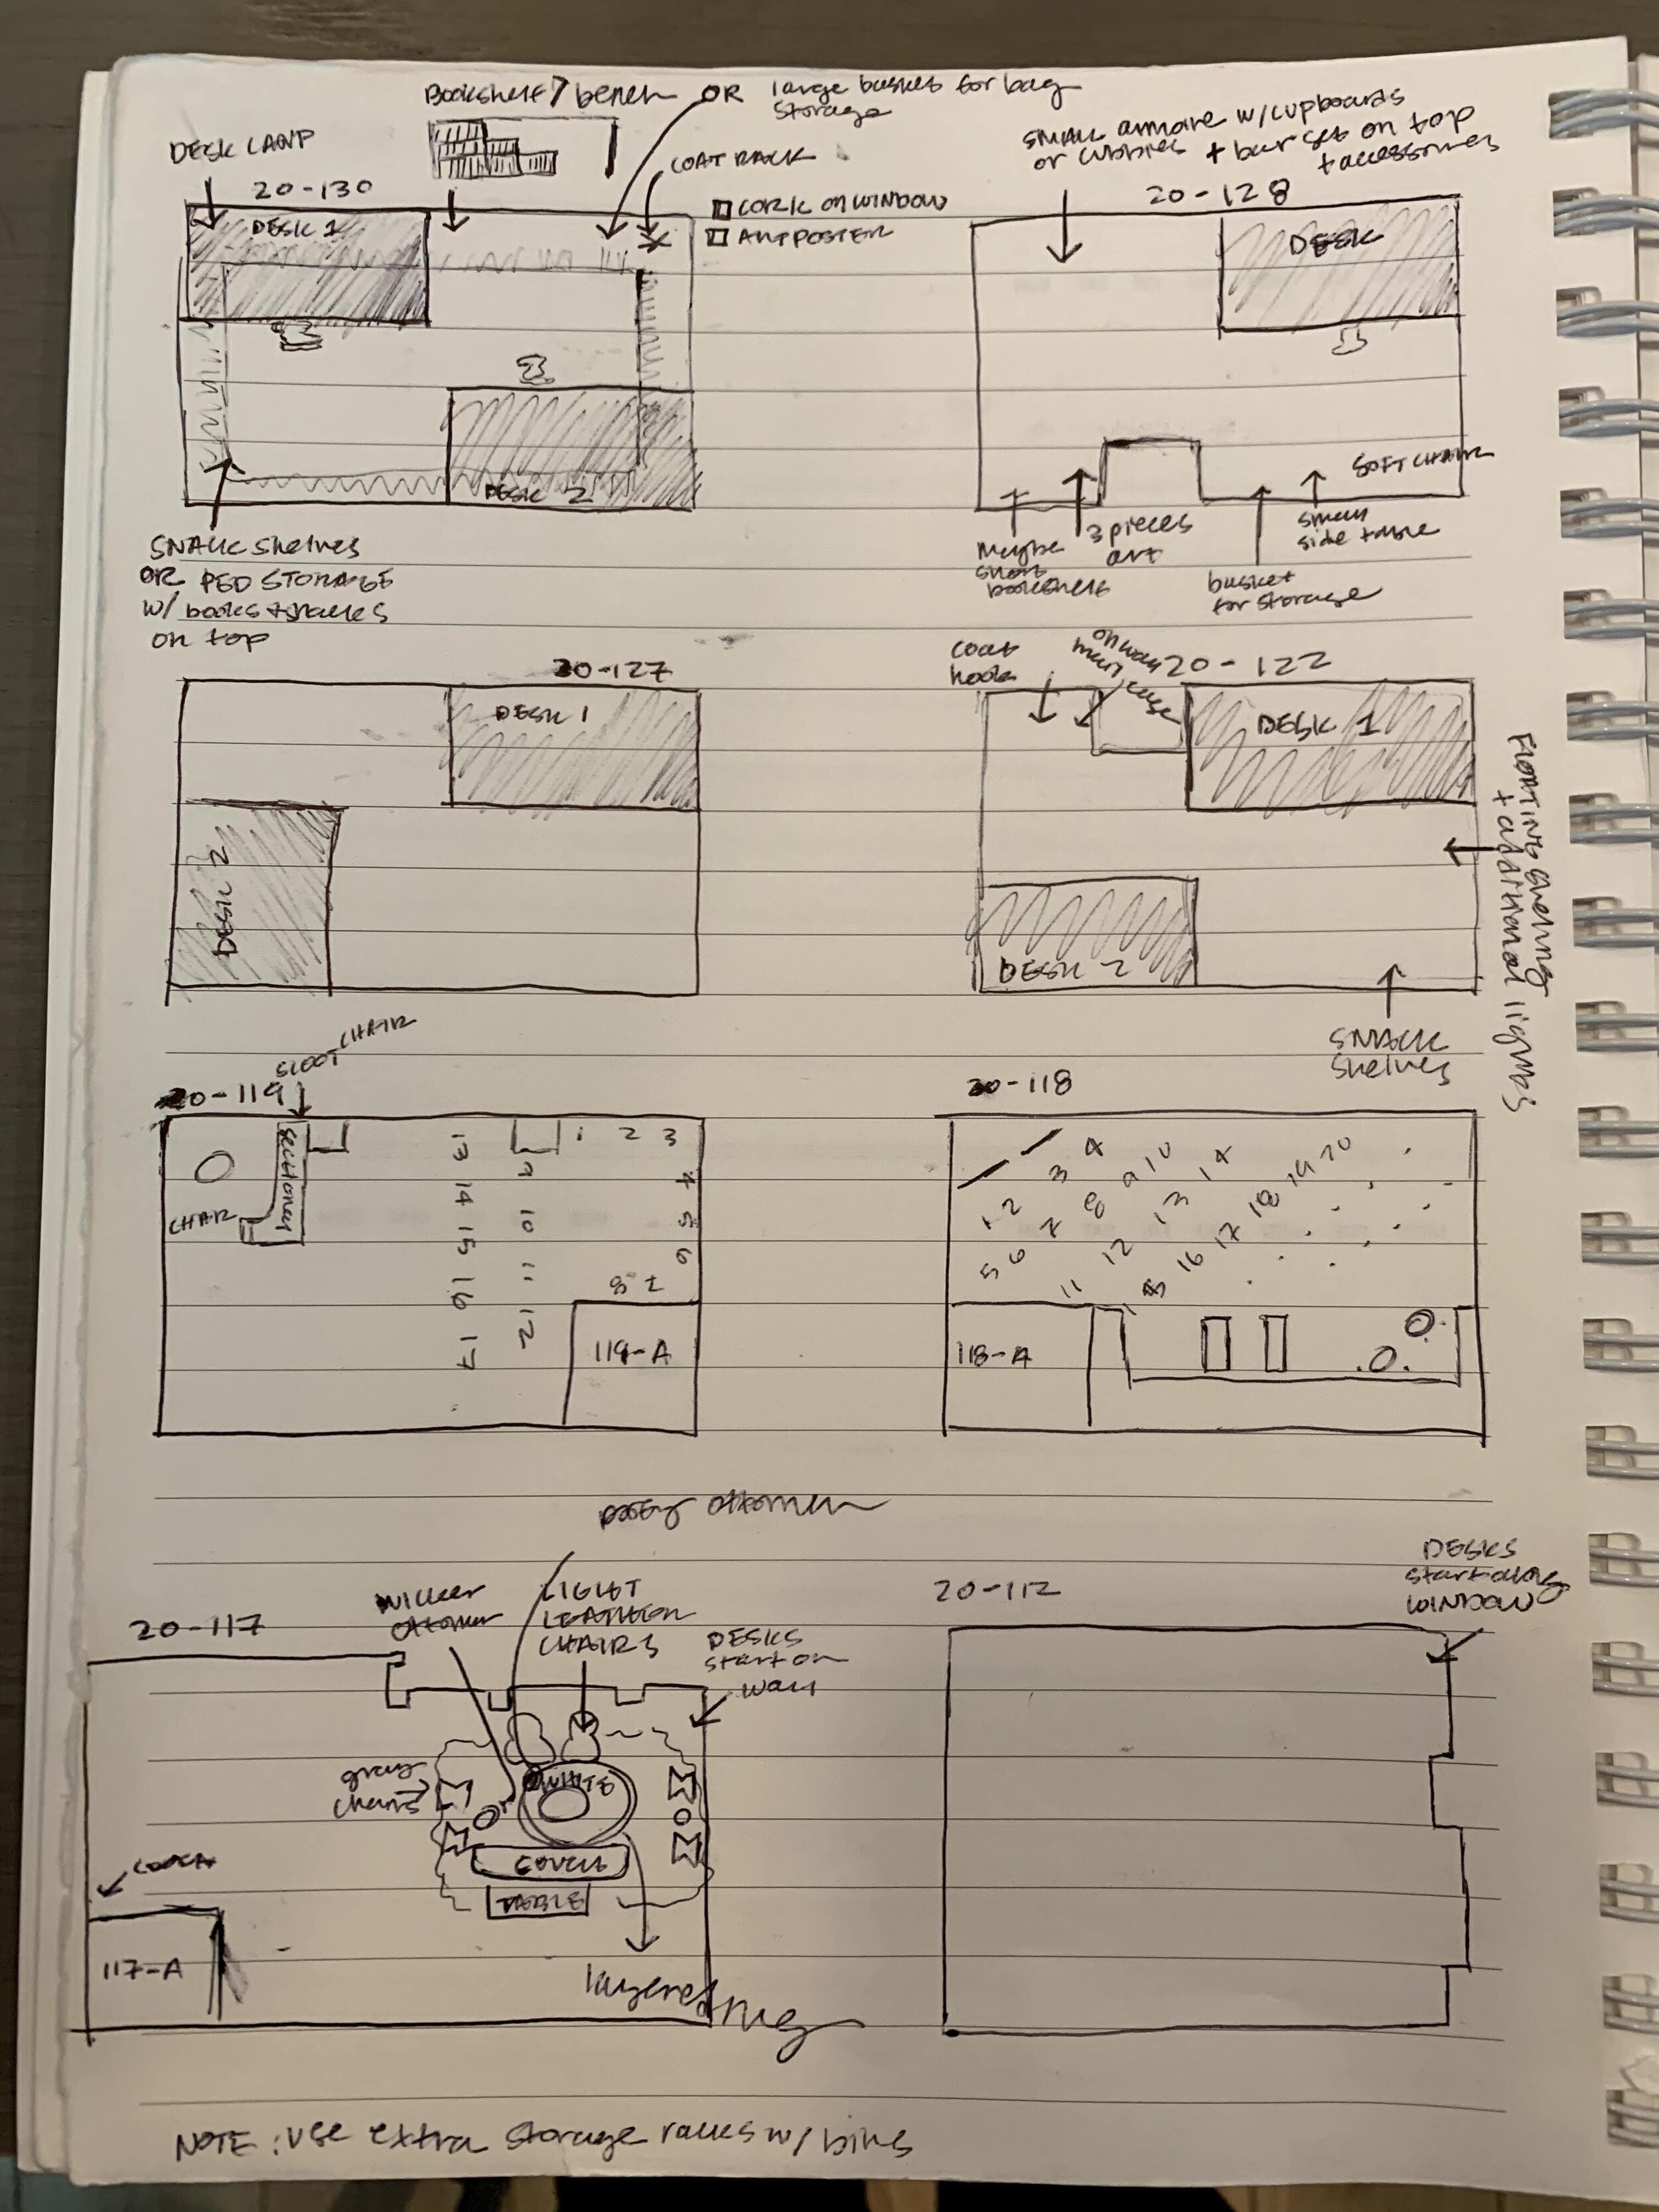 Bookshelf / bench OR large basket for bag
storage
DESK LAMP
COAT RACK
20-130
DESK 1
□ CORK ON WINDOW
□ ART POSTER
DESK 2
SNACK Shelves
OR PED STORAGE
w/ books + snacks
on top
SMALL armoire w/cupboards
or cubbies + bar set on top
+ accessories
20-128
DESK
SOFT CHAIR
Maybe
short
bookshelf
3 pieces
art
basket
for storage
small
side table
20-127
DESK 1
DESK 2
coat
hook
on wall
20-122
DESK 1
DESK 2
FLOATING shelving
+ additional lights
SNACK
Shelves
20-119
CHAIR
CHAIR
1 2 3
4
5
6
8 7
9
10
11
12
13
14
15
16
17
119-A
20-118
1 2 3 4
5 6 7 8 9 10
11 12 13 14
16 17 18 19 20
118-A
ottoman
20-117
WICKER
ottoman
LIGHT
LEATHER
CHAIRS
DESKS
start on
wall
gray
chairs
WHITE
COUCH
TABLE
117-A
layered rug
20-112
DESKS
start along
WINDOW
NOTE: use extra storage racks w/ bins